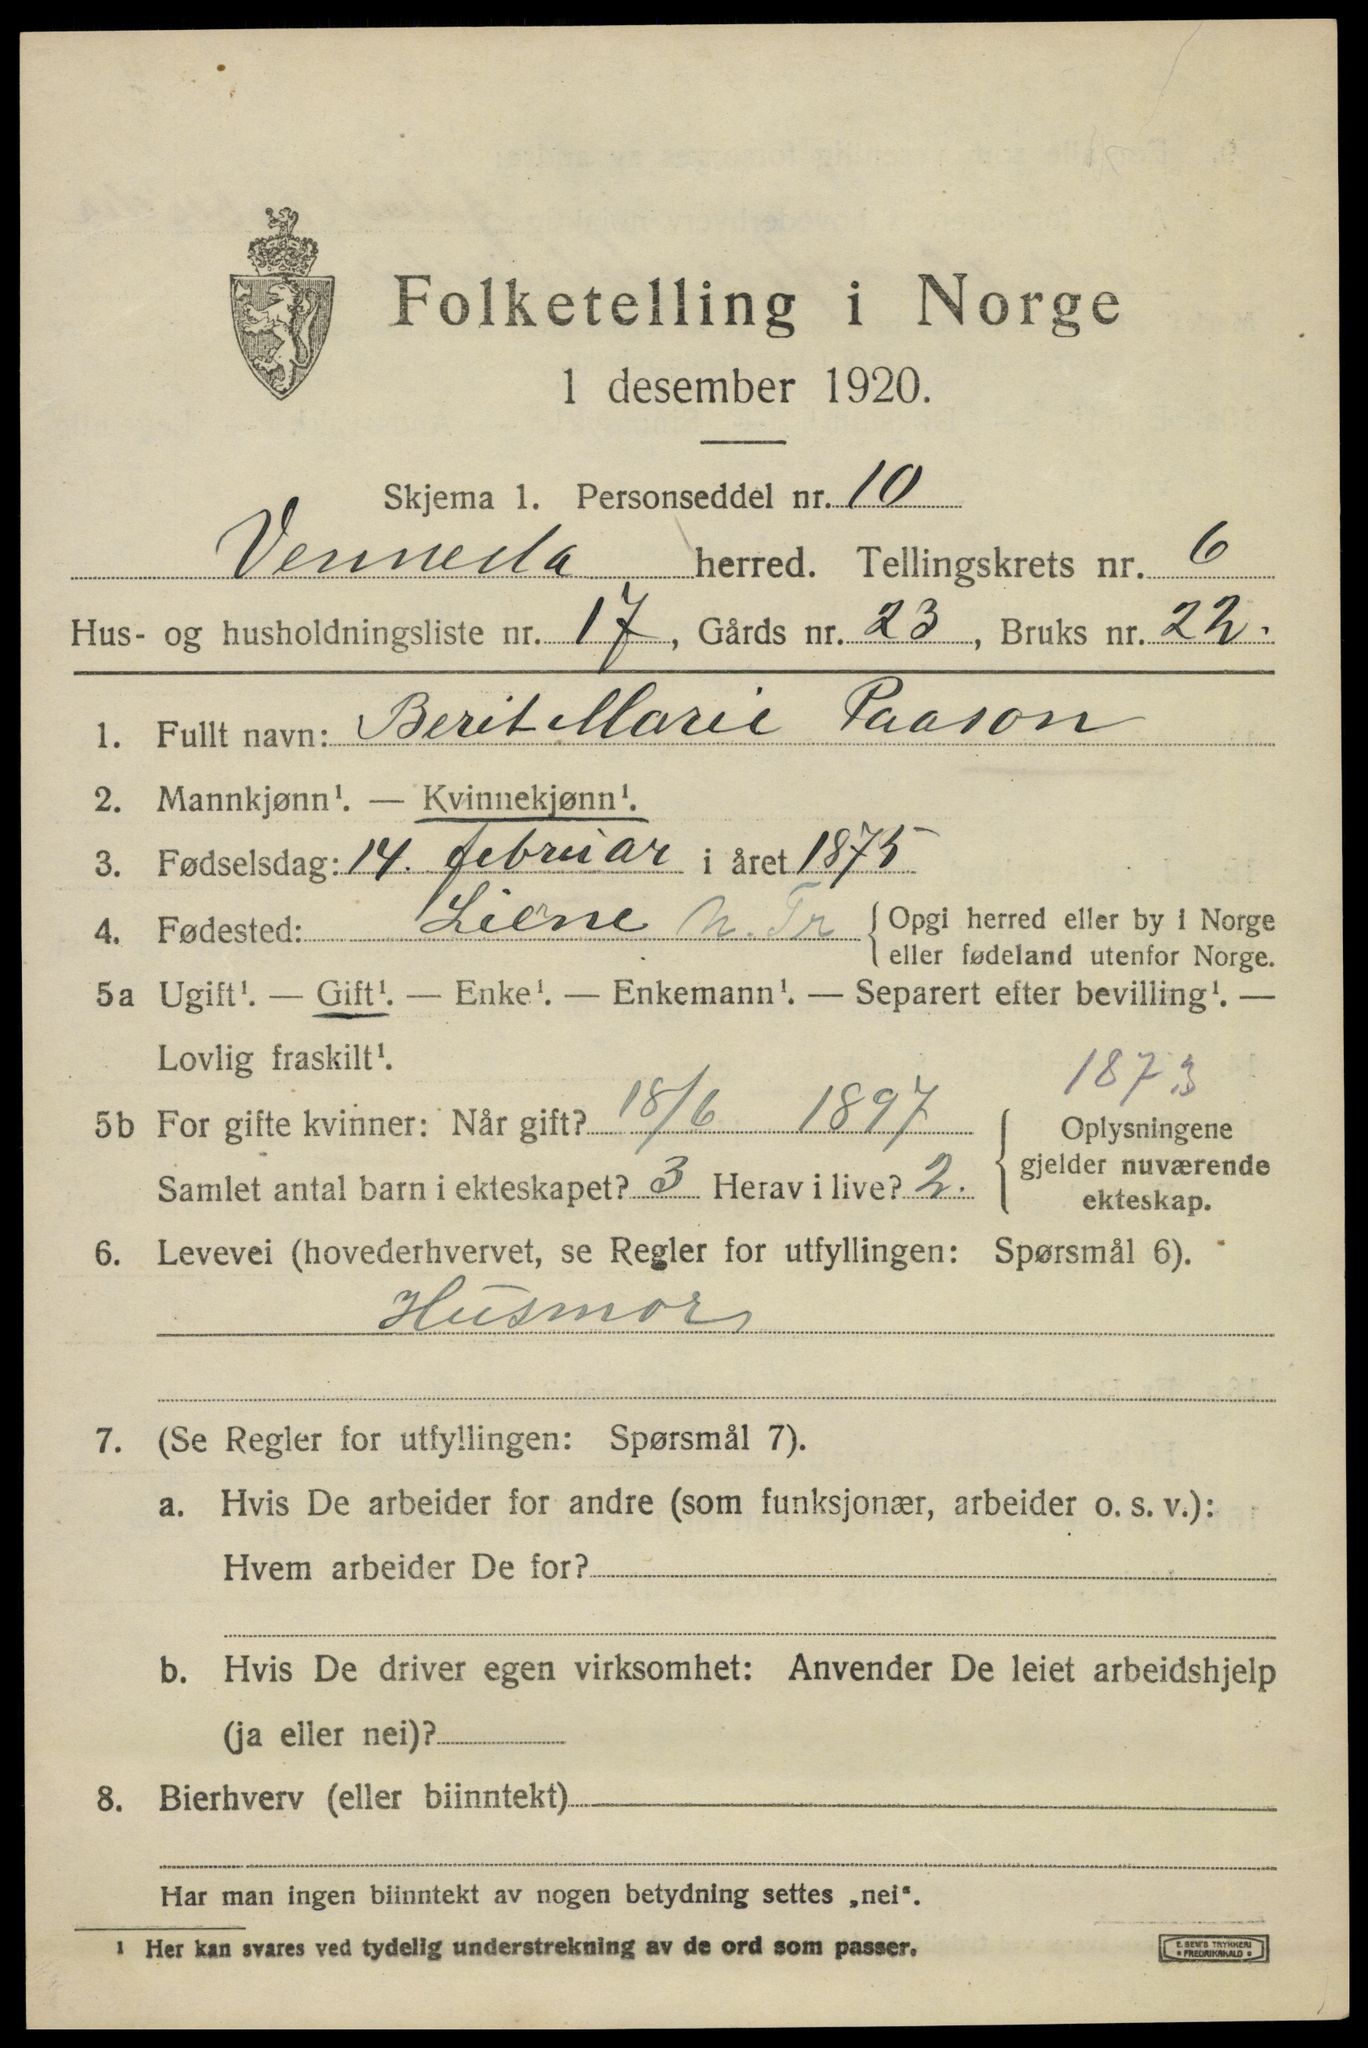 Folketelling i Norge
1 desember 1920.
Skjema 1. Personseddel nr. 10
Vennesla herred. Tellingskrets nr. 6
Hus- og husholdningsliste nr. 17, Gårds nr. 23, Bruks nr. 22.
1. Fullt navn: Berit Marie Paason
2. Mannkjønn¹. — Kvinnekjønn¹.
3. Fødselsdag: 14. februar i året 1875
4. Fødested: Lierne N. Tr { Opgi herred eller by i Norge
eller fødeland utenfor Norge.
5a Ugift¹. — Gift¹. — Enke¹. — Enkemann¹. — Separert efter bevilling¹. —
Lovlig fraskilt¹.
1873
5b For gifte kvinner: Når gift? 18/6 1897
Samlet antal barn i ekteskapet? 3 Herav i live? 2.
Oplysningene
gjelder nuværende
ekteskap.
6. Levevei (hovederhvervet, se Regler for utfyllingen: Spørsmål 6).
Husmor
7. (Se Regler for utfyllingen: Spørsmål 7).
a. Hvis De arbeider for andre (som funksjonær, arbeider o. s. v.):
Hvem arbeider De for?
b. Hvis De driver egen virksomhet: Anvender De leiet arbeidshjelp
(ja eller nei)?
8. Bierhverv (eller biinntekt)
Har man ingen biinntekt av nogen betydning settes „nei“.
1 Her kan svares ved tydelig understrekning av de ord som passer.
E. SEM'S TRYKKERI
FREDRIKSHALD